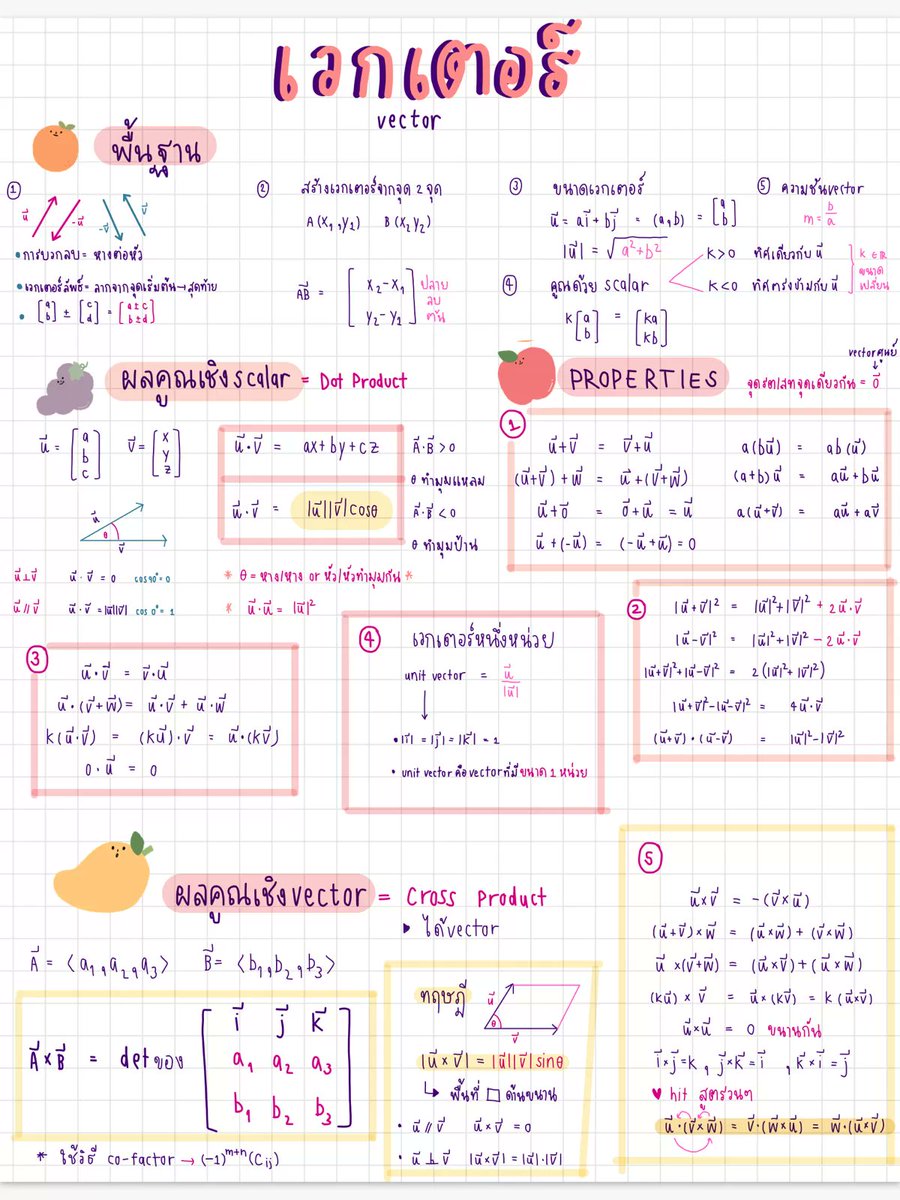 เวกเตอร์
vector
พื้นฐาน
① u⃗ -u⃗ -v⃗ v⃗
• การบวกลบ = หางต่อหัว
• เวกเตอร์ลัพธ์ = ลากจากจุดเริ่มต้น → สุดท้าย
• [a b] ± [c d] = [a±c b±d]
② สร้างเวกเตอร์จากจุด 2 จุด
A (x₁,y₁) B (x₂y₂)
AB⃗ = [x₂-x₁ y₂-y₁] ปลาย ลบ ต้น
③ ขนาดเวกเตอร์
u⃗ = ai⃗ + bj⃗ = (a,b) = [a b]
|u⃗| = √a²+b²
④ คูณด้วย scalar
K>0 ทิศเดียวกับ u⃗
K<0 ทิศตรงข้ามกับ u⃗
k ∈ R ขนาดเปลี่ยน
K[a b] = [ka kb]
⑤ ความชันvector
m = b/a
ผลคูณเชิงscalar = Dot Product
u⃗ = [a b c] v⃗ = [x y z]
u⃗ θ v⃗
u⃗·v⃗ = ax+by+cz
u⃗·v⃗ = |u⃗||v⃗|cosθ
A⃗·B⃗ > 0
θ ทำมุมแหลม
A⃗·B⃗ < 0
θ ทำมุมป้าน
u⃗⊥v⃗ u⃗·v⃗ = 0 cos90° = 0
u⃗//v⃗ u⃗·v⃗ = |u⃗||v⃗| cos 0° = 1
* θ = หาง/หาง or หัว/หัวทำมุมกัน *
* u⃗·u⃗ = |u⃗|²
PROPERTIES
vectorศูนย์
จุดเดียวกัน = 0⃗
①
u⃗+v⃗ = v⃗+u⃗
(u⃗+v⃗)+w⃗ = u⃗+(v⃗+w⃗)
u⃗+0⃗ = 0⃗+u⃗ = u⃗
u⃗+(-u⃗) = (-u⃗+u⃗) = 0
a(bu⃗) = ab(u⃗)
(a+b)u⃗ = au⃗+bu⃗
a(u⃗+v⃗) = au⃗+av⃗
②
|u⃗+v⃗|² = |u⃗|²+|v⃗|² + 2u⃗·v⃗
|u⃗-v⃗|² = |u⃗|²+|v⃗|² - 2u⃗·v⃗
|u⃗+v⃗|²+|u⃗-v⃗|² = 2(|u⃗|²+|v⃗|²)
|u⃗+v⃗|²-|u⃗-v⃗|² = 4u⃗·v⃗
(u⃗+v⃗)·(u⃗-v⃗) = |u⃗|²-|v⃗|²
③
u⃗·v⃗ = v⃗·u⃗
u⃗·(v⃗+w⃗) = u⃗·v⃗ + u⃗·w⃗
K(u⃗·v⃗) = (ku⃗)·v⃗ = u⃗·(kv⃗)
0·u⃗ = 0
④ เวกเตอร์หนึ่งหน่วย
unit vector = u⃗/|u⃗|
• |i⃗| = |j⃗| = |k⃗| = 1
• unit vector คือvectorที่มีขนาด 1 หน่วย
ผลคูณเชิงvector = Cross Product
▸ ได้vector
A⃗ = ⟨a₁,a₂,a₃⟩ B⃗ = ⟨b₁,b₂,b₃⟩
A⃗×B⃗ = detของ [i⃗ j⃗ k⃗
a₁ a₂ a₃
b₁ b₂ b₃]
* ใช้วิธี co-factor → (-1)ᵐ⁺ⁿ(Cij)
ทฤษฎี u⃗ θ v⃗
|u⃗×v⃗| = |u⃗||v⃗|sinθ
↳ พื้นที่ □ ด้านขนาน
• u⃗//v⃗ u⃗×v⃗ = 0
• u⃗⊥v⃗ |u⃗×v⃗| = |u⃗|·|v⃗|
⑤
u⃗×v⃗ = -(v⃗×u⃗)
(u⃗+v⃗)×w⃗ = (u⃗×w⃗)+(v⃗×w⃗)
u⃗×(v⃗+w⃗) = (u⃗×v⃗)+(u⃗×w⃗)
(ku⃗)×v⃗ = u⃗×(kv⃗) = k(u⃗×v⃗)
u⃗×u⃗ = 0 ขนานกัน
i⃗×j⃗=k , j⃗×k⃗=i⃗ , k⃗×i⃗=j⃗
♥ hit สูตรรวนๆ
u⃗·(v⃗×w⃗) = v⃗·(w⃗×u⃗) = w⃗·(u⃗×v⃗)